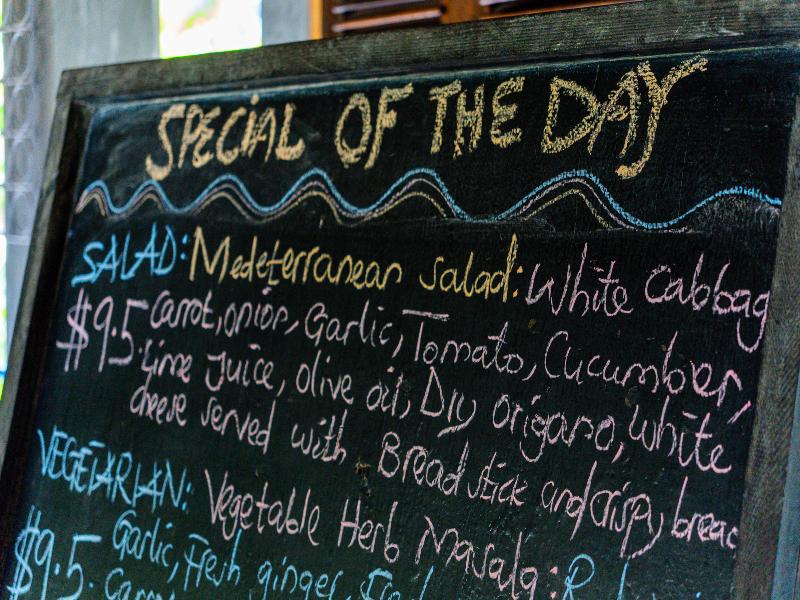 SPECIAL OF THE DAY
SALAD: Medeterranean salad: White Cabbag
$9.5 Carrot, onion, Garlic, Tomato, Cucumber,
Lime Juice, olive oil, Dry origano, white
cheese served with Bread stick and crispy breac
VEGETARIAN: Vegetable Herb Masala:
$9.5. Garlic, Fresh ginger,